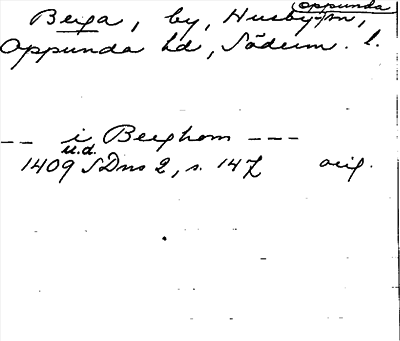 oppunda
Berga, by, Husby-sn,
Oppunda hd, Söderm. l.
-- i Berghom ---
u.d.
1409 SDns 2, s. 147 orig.